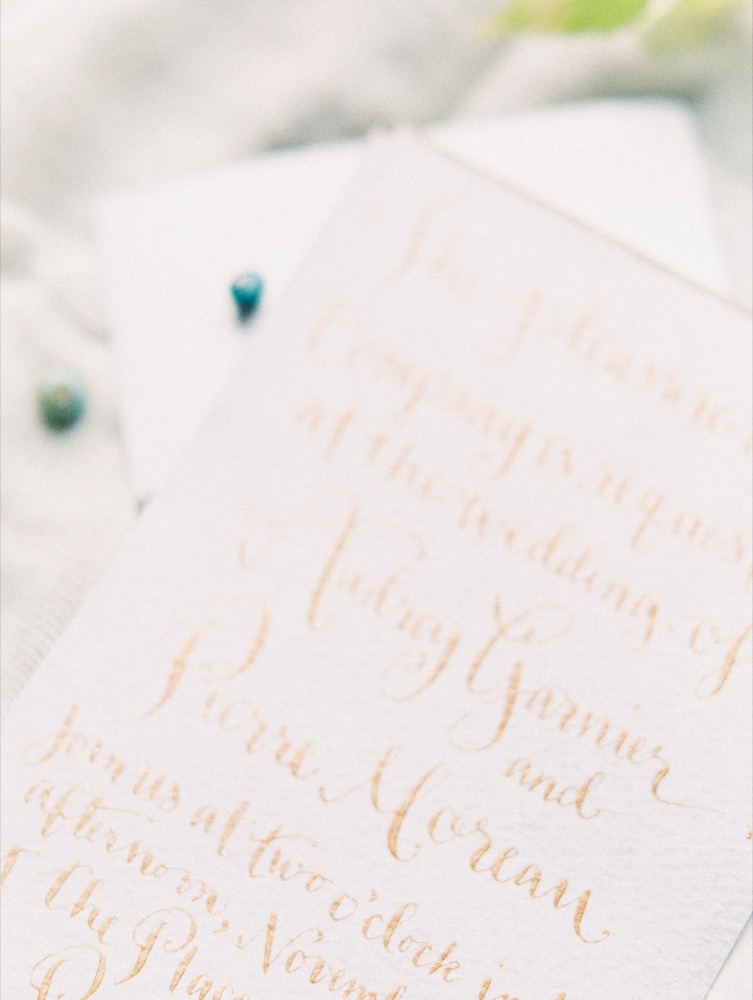 The pleasure
Company is reques
at the wedding of
Audrey Garnier
and
Pierre Moreau
Join us at two o'clock in t
afternoon, Novemb
t the Place